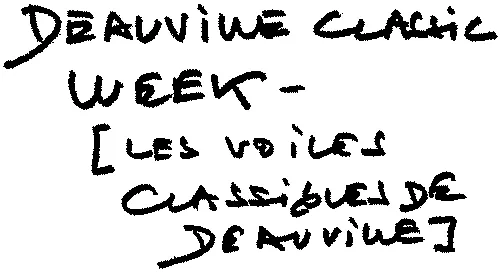 DEAUVILLE CLASSIC
WEEK -
[LES VOILES
CLASSIQUES DE
DEAUVILLE]